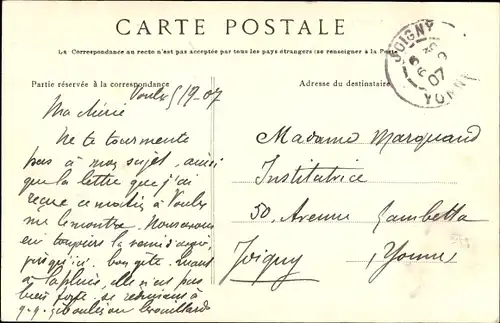 CARTE POSTALE
La Correspondance au recto n'est pas acceptée par tous les pays étrangers (se renseigner à la Poste)
Partie réservée à la correspondance
Adresse du destinataire
JOIGNY
07
YONNE
5/9-07
Ma
Ne te tourmente
pas à mon sujet, ainsi
que la lettre que j'ai
reçue ce matin à Voulx
me le montre. Nous avons
eu toujours la
jusqu'ici. bon gîte. Quant
à la pluie, elle n'est pas
très forte. se réduisant à
q.q. brouillards
Madame Marquand
Institutrice
50, Avenue Gambetta
Joigny (Yonne)